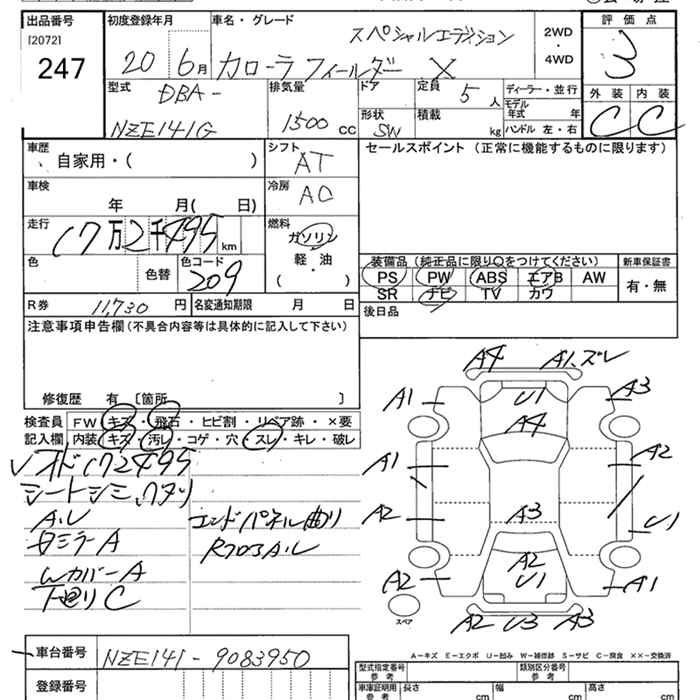 出品番号
[2072]
247
初度登録年月
20 6月
車名・グレード
スペシャルエディション
カローラ フィールダー X
2WD
・
4WD
評価点
3
外装 内装
C C
型式
DBA-
NZE141G
排気量
1500 CC
ドア
形状
SW
定員
5 人
積載
kg
ディーラー・並行
モデル
年式 年
ハンドル 左・右
車歴
自家用・( )
シフト
AT
セールスポイント (正常に機能するものに限ります)
車検
年 月( 日)
冷房
AC
走行
17万2千495 km
燃料
ガソリン
軽・油
( ・ )
色
色替
色コード
209
装備品 (純正品に限り○をつけてください)
新車保証書
PS PW ABS エアB AW
SR ナビ TV カワ
有・無
R券 11,730 円
名変通知期限 月 日
後日品
注意事項申告欄 (不具合内容等は具体的に記入して下さい)
修復歴 有 [箇所 ]
検査員 FW キズ・飛石・ヒビ割・リペア跡・×要
記入欄 内装 キズ・汚レ・コゲ・穴・スレ・キレ・破レ
オド172495
シートシミ、ワタリ
A.U
エンドパネル曲り
ミラーA
Wカバー A
下回りC
A4 A1.ズレ
A1 U1 A3
A4
A1 A2
A2 A3 U1
A2
U1
A2 A1
スペア
A2 U3 A3
A－キズ E－エクボ U－凹み W－補修跡 S－サビ C－腐食 ××－交換済
車台番号 NZE141-9083950
登録番号
型式指定番号
参考
類別区分番号
参考
車庫証明用
参考
長さ cm 幅 cm 高さ cm